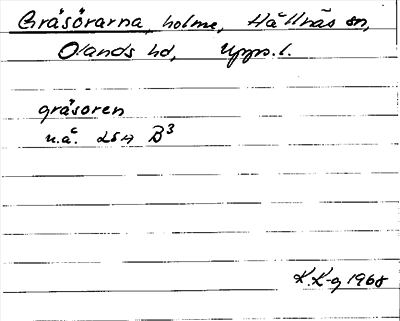 Gräsörarna, holme, Hållnäs sn,
Olands hd, Upps. l.
gräsören
u.å. LSA B³
K.K-g 1968